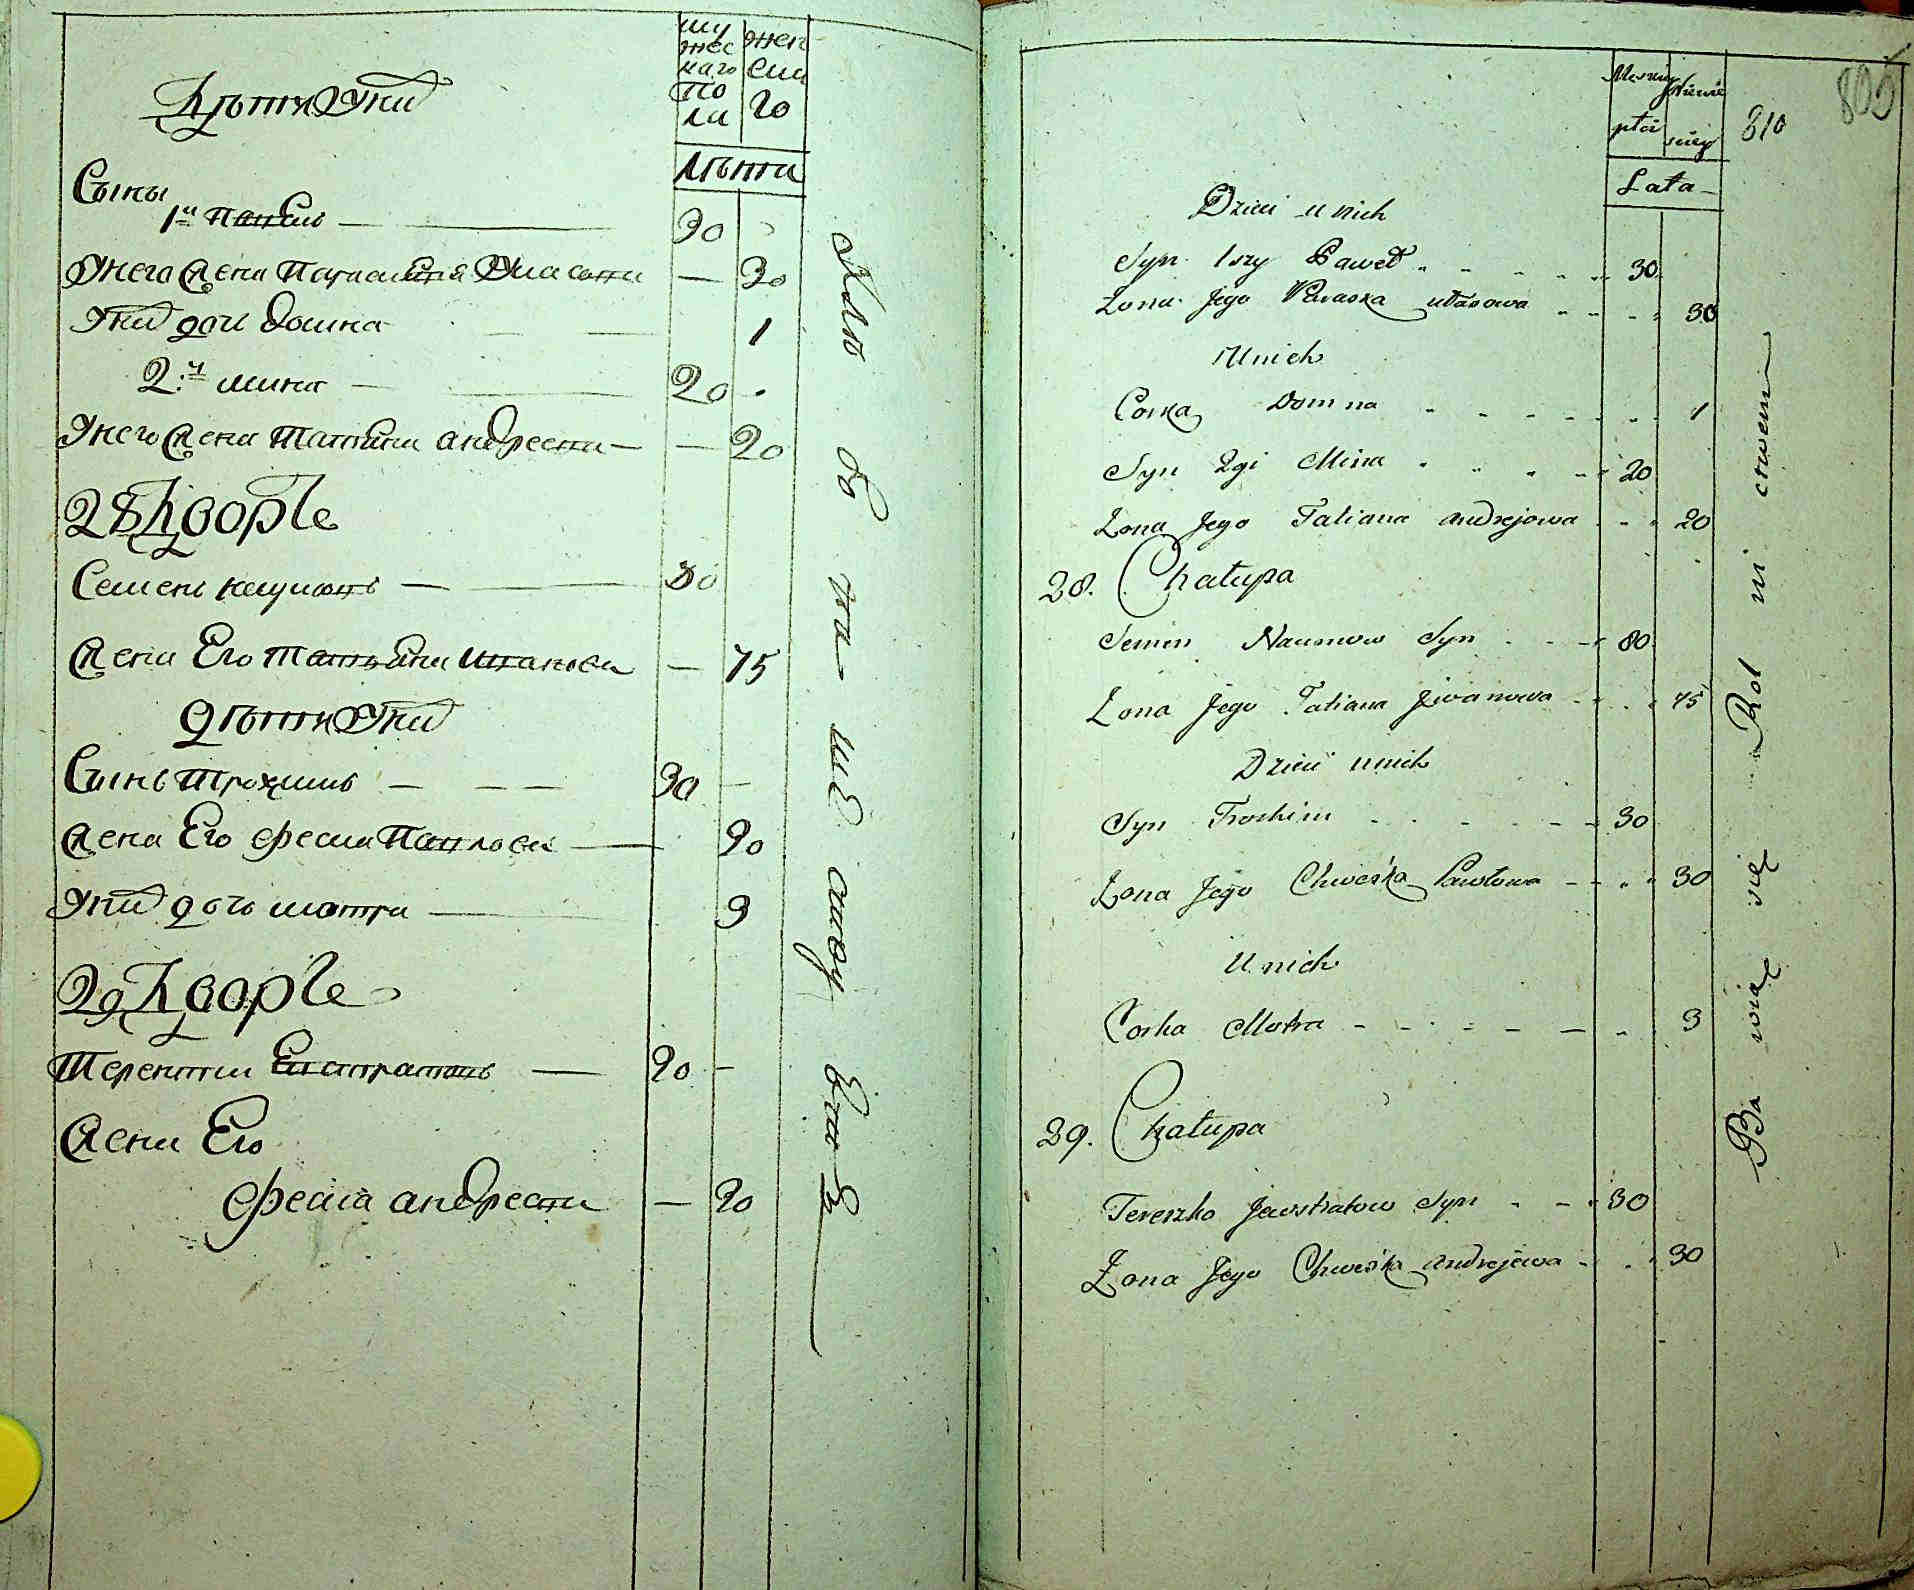 Дѣти У ни
му жес каго по ла
жен ска го
Лѣта
Сыны
1й Павелъ — 30
У него жена Параскея Власова — 30
У ни дочь Домна 1
2й мина — 20
У него жена Татияна андреева — 20
28 Дворъ
Семенъ наумовъ — 80
жена Его татьяна иванова — 75
дѣти У ни
Сынъ трохимъ — 30 —
жена Его феска Павлова — 30
У ни дочь мотра — 3
29 Дворъ
Терентии Евстратовъ — 30 —
жена Его
феска андреева — 30
Męzkiey płci
Żeńskiey
810
805
Lata
Dzieci u nich
Syn 1szy Paweł 30
Żona Jego Paraska Ułasowa 30
U nich
Corka Domna 1
Syn 2gi Mina 20
Żona Jego Tatiana Andrejowa 20
28. Chałupa
Semen Naumow Syn 80
Żona Jego Tatiana Jwanowa 75
Dzieci u nich
Syn Trochim 30
Żona Jego Chweśka Pawłowa 30
U nich
Corka Motra 3
29. Chałupa
Tereszko Jewstratow Syn 30
Żona Jego Chweśka Andrejewa 30